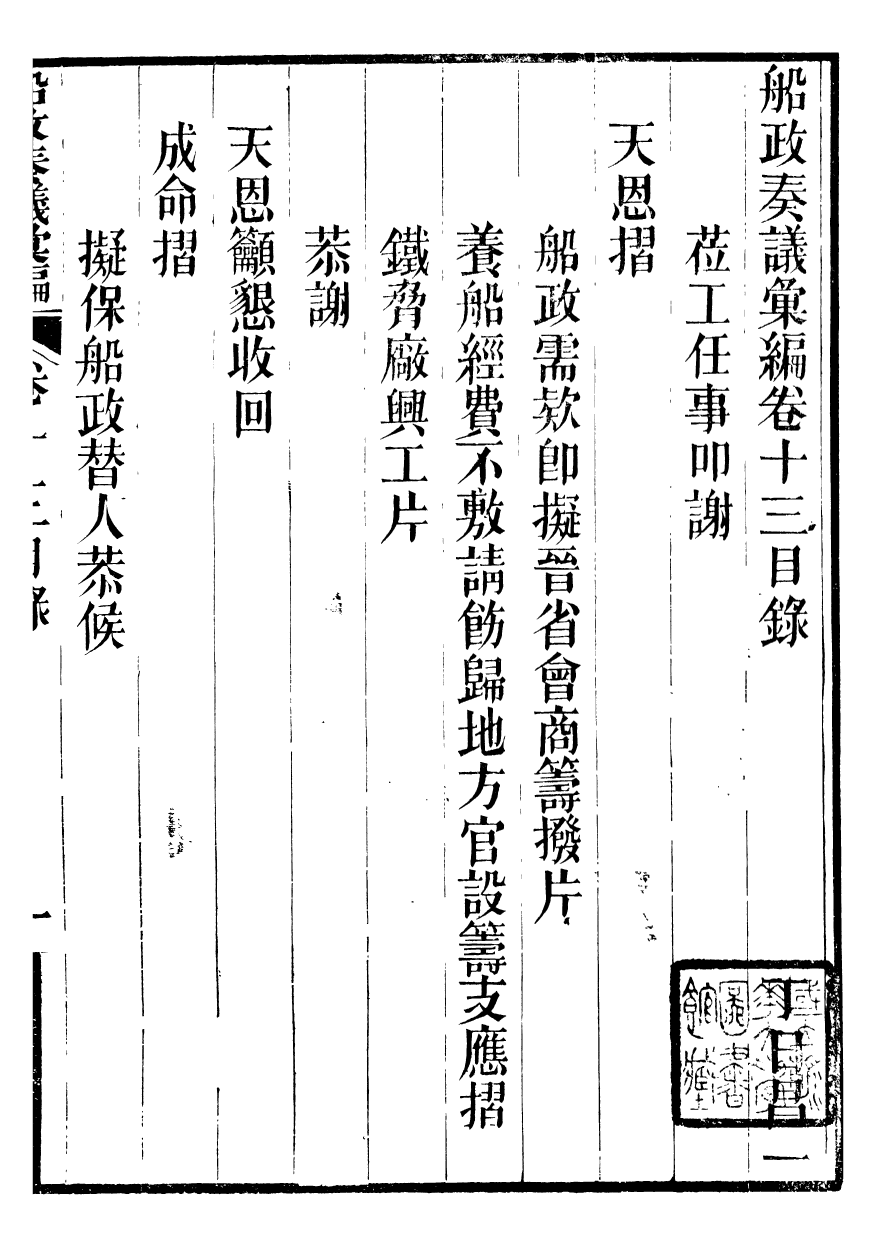 船政奏議彙編卷十三目錄　丁日昌一
蒞工任事叩謝
天恩摺
船政需款卽擬晉省會商籌撥片
養船經費不敷請飭歸地方官設籌支應摺
鐵脅廠興工片
恭謝
天恩籲懇收回
成命摺
擬保船政替人恭候
船政奏議彙編　卷十三目錄　一